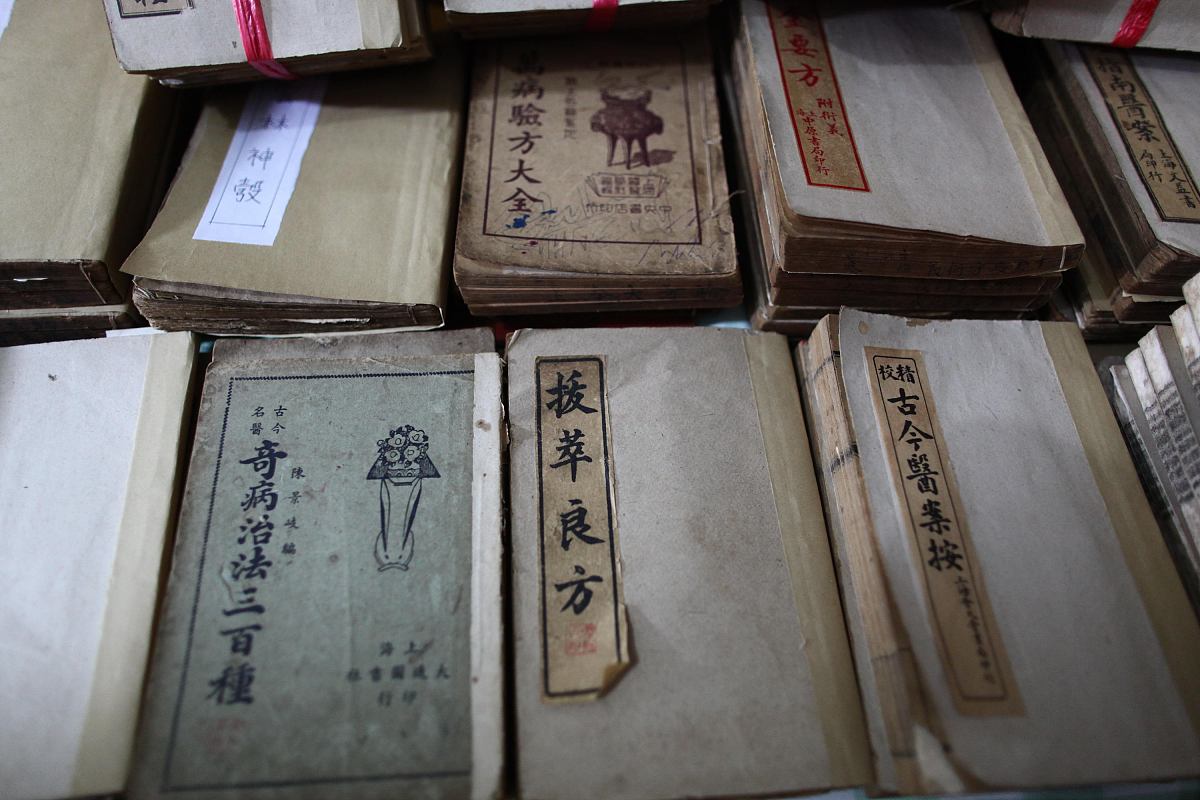 神
彀
萬病驗方大全
中央書店印行
要方
附衍義
上海中原書局印行
指南醫案
上海文益書局印行
古今名醫
奇病治法三百種
陳景岐編
上海
大通圖書社
印行
拔萃良方
精校
古今醫案按